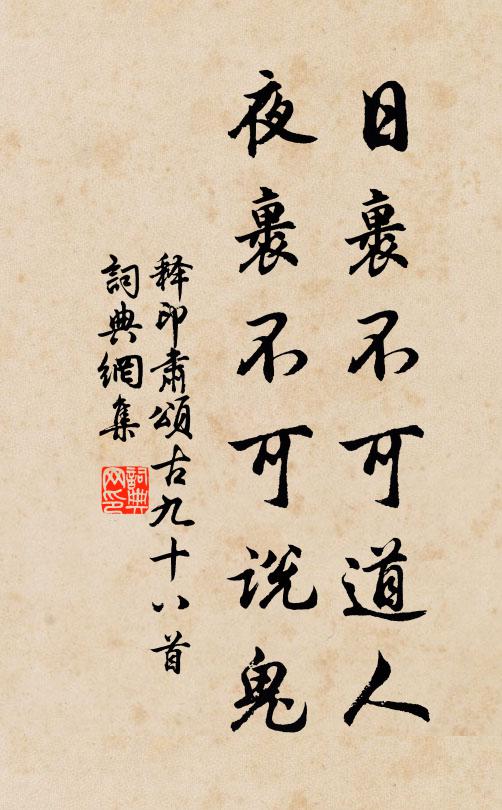 日裹不可道人
夜裹不可説鬼
释印肅頌古九十八首
詞典網集
詞典
网印